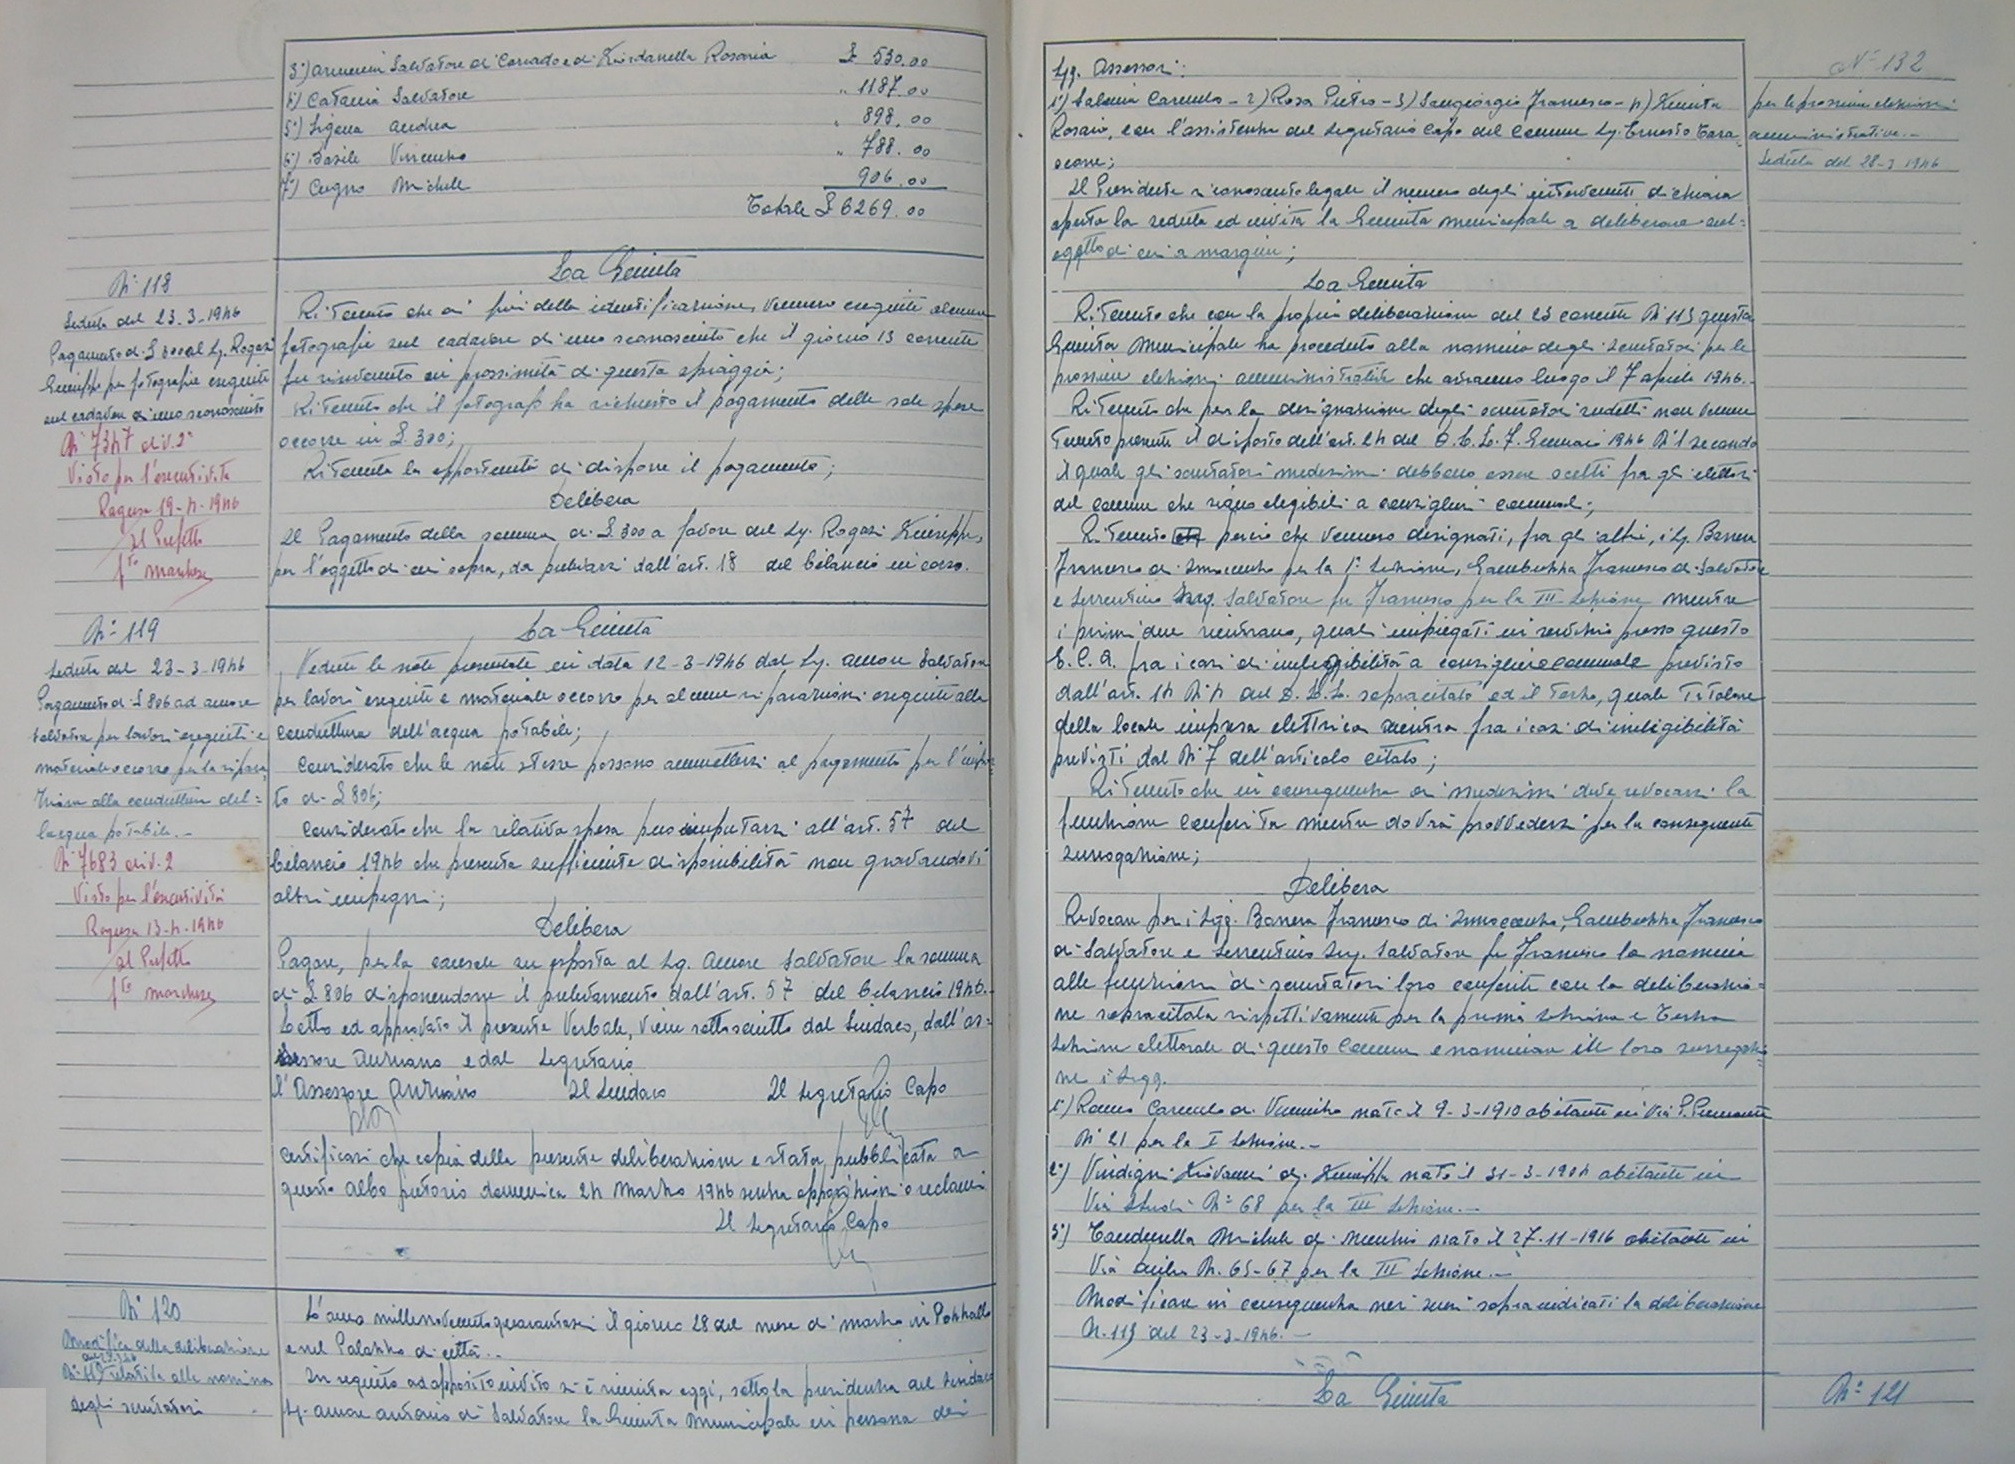 3°) Salvatore di Corrado e di Giordanella Rosaria £ 530.00
4°) Catania Salvatore " 1187.00
5°) Ligena Andrea " 898.00
6°) Basile Vincenzo " 788.00
7°) Cugno Michele 906.00
Totale £ 6269.00
N° 118
Seduta del 23-3-1946
Pagamento di £ 300 al Sg. Rogasi
Giuseppe per fotografie eseguite
sul cadavere di uno sconosciuto
N° 7347 div. 2ª
Visto per l'esecutività
Ragusa 19-4-1946
Il Prefetto
f.to Marchese
La Giunta
Ritenuto che ai fini della identificazione, vennero eseguite alcune
fotografie sul cadavere di uno sconosciuto che il giorno 13 corrente
fu rinvenuto in prossimità di questa spiaggia;
Ritenuto che il fotografo ha richiesto il pagamento delle sole spese
occorse in £. 300;
Ritenuta la opportunità di disporre il pagamento;
Delibera
Il Pagamento della somma di £. 300 a favore del Sg. Rogasi Giuseppe,
per l'oggetto di cui sopra, da prelevarsi dall'art. 18 del bilancio in corso.
N° 119
Seduta del 23-3-1946
Pagamento di £ 806 ad Amore
Salvatore per lavori eseguiti e
materiale occorso per la ripara
zione alla conduttura del=
l'acqua potabile.-
N° 7683 div. 2
Visto per l'esecutività
Ragusa 13-4-1946
Il Prefetto
f.to Marchese
La Giunta
Vedute le note presentate in data 12-3-1946 dal Sg. Amore Salvatore
per lavori eseguiti e materiale occorso per alcune riparazioni eseguite alla
conduttura dell'acqua potabile;
Considerato che le note stesse possono ammettersi al pagamento per l'impor
to di £ 806;
Considerato che la relativa spesa può imputarsi all'art. 57 del
bilancio 1946 che presenta sufficiente disponibilità non gravandovi
altri impegni;
Delibera
Pagare, per la causale su esposta al Sg. Amore Salvatore la somma
di £. 806 disponendone il prelevamento dall'art. 57 del bilancio 1946.-
Letto ed approvato il presente Verbale, viene sottoscritto dal Sindaco, dall'As=
sessore Anziano e dal Segretario
L'Assessore Anziano Il Sindaco Il Segretario Capo
Certificasi che copia della presente deliberazione è stata pubblicata a
questo albo pretorio domenica 24 Marzo 1946 senza opposizioni o reclami
Il Segretario Capo
N° 120
Modifica della deliberazione
N° 113 relativa alla nomina
degli scrutatori
L'anno millenovecentoquarantasei il giorno 28 del mese di marzo in Pozzallo
e nel Palazzo di città.-
In seguito ad apposito invito si è riunita oggi, sotto la presidenza del Sindaco
Sg. Amore Antonio di Salvatore la Giunta Municipale in persona dei
Sgg. Assessori:
1°) Salonia Carmelo - 2) Rosa Pietro - 3) Sangiorgio Francesco - 4) Giunta
Rosario, con l'assistenza del Segretario Capo del Comune Sg. Ernesto
N° 132
per le prossime elezioni
amministrative.-
Seduta del 28-3-1946
Il Presidente riconosciuto legale il numero degli intervenuti dichiara
aperta la seduta ed invita la Giunta Municipale a deliberare sul=
l'oggetto di cui a margine;
La Giunta
Ritenuto che con la propria deliberazione del 23 corrente N° 113 questa
Giunta Municipale ha proceduto alla nomina degli scrutatori per le
prossime elezioni amministrative che avranno luogo il 7 aprile 1946.-
Ritenuto che per la designazione degli scrutatori sudetti non venne
tenuto presente il disposto dell'art. 24 del D.L.L. 7 Gennaio 1946 N° 1 secondo
il quale gli scrutatori medesimi debbono essere scelti fra gli elettori
del comune che siano elegibili a consiglieri comunali;
Ritenuto perciò che vennero designati, fra gli altri, i Sg. Barrera
Francesco di Innocenzo per la 1ª Sezione, Gambuzza Francesco di Salvatore
e Serrentino Ing. Salvatore fu Francesco per la III Sezione mentre
i primi due rientrano, quali impiegati in servizio presso questo
E.C.A. fra i casi di ineleggibilità a consigliere comunale previsto
dall'art. 14 N° 4 del D.L.L. sopracitato ed il terzo, quale Titolare
della locale impresa elettrica rientra fra i casi di ineligibilità
previsti dal N° 7 dell'articolo citato;
Ritenuto che in conseguenza ai medesimi deve revocarsi la
funzione conferita mentre dovrà provvedersi per la conseguente
surrogazione;
Delibera
Revocare per i Sgg. Barrera Francesco di Innocenzo, Gambuzza Francesco
di Salvatore e Serrentino Ing. Salvatore fu Francesco la nomina
alle funzioni di scrutatori loro conferite con la deliberazio=
ne sopracitata rispettivamente per la prima sezione e terza
Sezione elettorale di questo Comune e nominare in loro surrogazio=
ne i Sigg.
1°) Carmelo di Vincenzo nato il 9-3-1910 abitante in Via
N° 21 per la I Sezione.-
2°) Vindigni Giovanni di Giuseppe nato il 31-3-1904 abitante in
Via Studi N° 68 per la III Sezione.-
3°) Michele di nato il 27-11-1916 abitante in
Via N. 65-67 per la III Sezione.-
Modificare in conseguenza nei sensi sopraindicati la deliberazione
N. 113 del 23-3-1946.-
La Giunta
N° 121